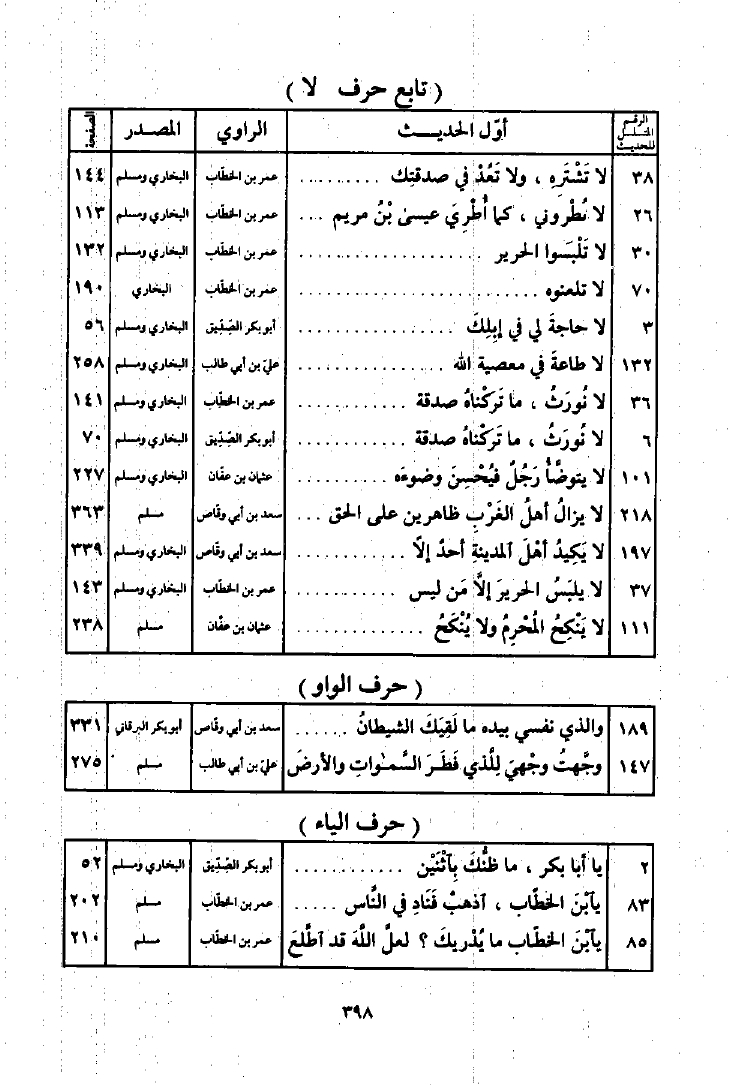 ( تابع حرف لا )
الرقم المتسلسل للحديث | أوّل الحديـــث | الراوي | المصـدر | الصفحة
٣٨ | لا تَشْتَرِهِ ، ولا تَعُدْ في صدقتِك .......... | عمر بن الخطّاب | البخاري ومسلم | ١٤٤
٢٦ | لا تُطْروني ، كما أُطْرِيَ عيسىٰ بْنُ مريم ... | عمر بن الخطّاب | البخاري ومسلم | ١١٣
٣٠ | لا تَلْبَسوا الحرير .................... | عمر بن الخطّاب | البخاري ومسلم | ١٣٢
٧٠ | لا تلعنوه .......................... | عمر بن الخطّاب | البخاري | ١٩٠
٣ | لا حاجةَ لي في إبِلِكَ ................ | أبو بكر الصّدّيق | البخاري ومسلم | ٥٦
١٣٢ | لا طاعةَ في معصية الله ................ | عليّ بن أبي طالب | البخاري ومسلم | ٢٥٨
٣٦ | لا نُورَثُ ، ما تَركْناهُ صدقة ............ | عمر بن الخطّاب | البخاري ومسلم | ١٤١
٦ | لا نُورَثُ ، ما تَركْناهُ صدقة ............ | أبو بكر الصّدّيق | البخاري ومسلم | ٧٠
١٠١ | لا يتوضَّأُ رَجُلٌ فيُحْسِنَ وضوءَه .......... | عثمان بن عفّان | البخاري ومسلم | ٢٢٧
٢١٨ | لا يزالُ أهلُ الغَرْبِ ظاهرين على الحق ... | سعد بن أبي وقّاص | مسلم | ٣٦٣
١٩٧ | لا يَكِيدُ أهْلَ ٱلمدينةِ أحدٌ إلاّ ............ | سعد بن أبي وقّاص | البخاري ومسلم | ٣٣٩
٣٧ | لا يلبَسُ الحريرَ إلاَّ مَن ليس ........... | عمر بن الخطّاب | البخاري ومسلم | ١٤٣
١١١ | لا يَنْكِحُ المُحْرِمُ ولا يُنْكَحُ ............. | عثمان بن عفّان | مسلم | ٢٣٨
( حرف الواو )
١٨٩ | والذي نفسي بيده ما لَقِيَكَ الشيطانُ ...... | سعد بن أبي وقّاص | أبو بكر البرقاني | ٣٣١
١٤٧ | وجَّهتُ وجْهيَ لِلَّذي فَطَرَ السَّمٰواتِ والأرضَ | عليّ بن أبي طالب | مسلم | ٢٧٥
( حرف الياء )
٢ | يا أبا بكر ، ما ظنُّكَ بِٱثْنَيْن ............ | أبو بكر الصّدّيق | البخاري ومسلم | ٥٢
٨٣ | يٱبْنَ الخطّاب ، ٱذهبْ فَنَادِ في النَّاس ..... | عمر بن الخطّاب | مسلم | ٢٠٢
٨٥ | يٱبْنَ الخطّاب ما يُدْريكَ ؟ لعلَّ اللَّهَ قد ٱطَّلعَ | عمر بن الخطّاب | مسلم | ٢١٠
٣٩٨